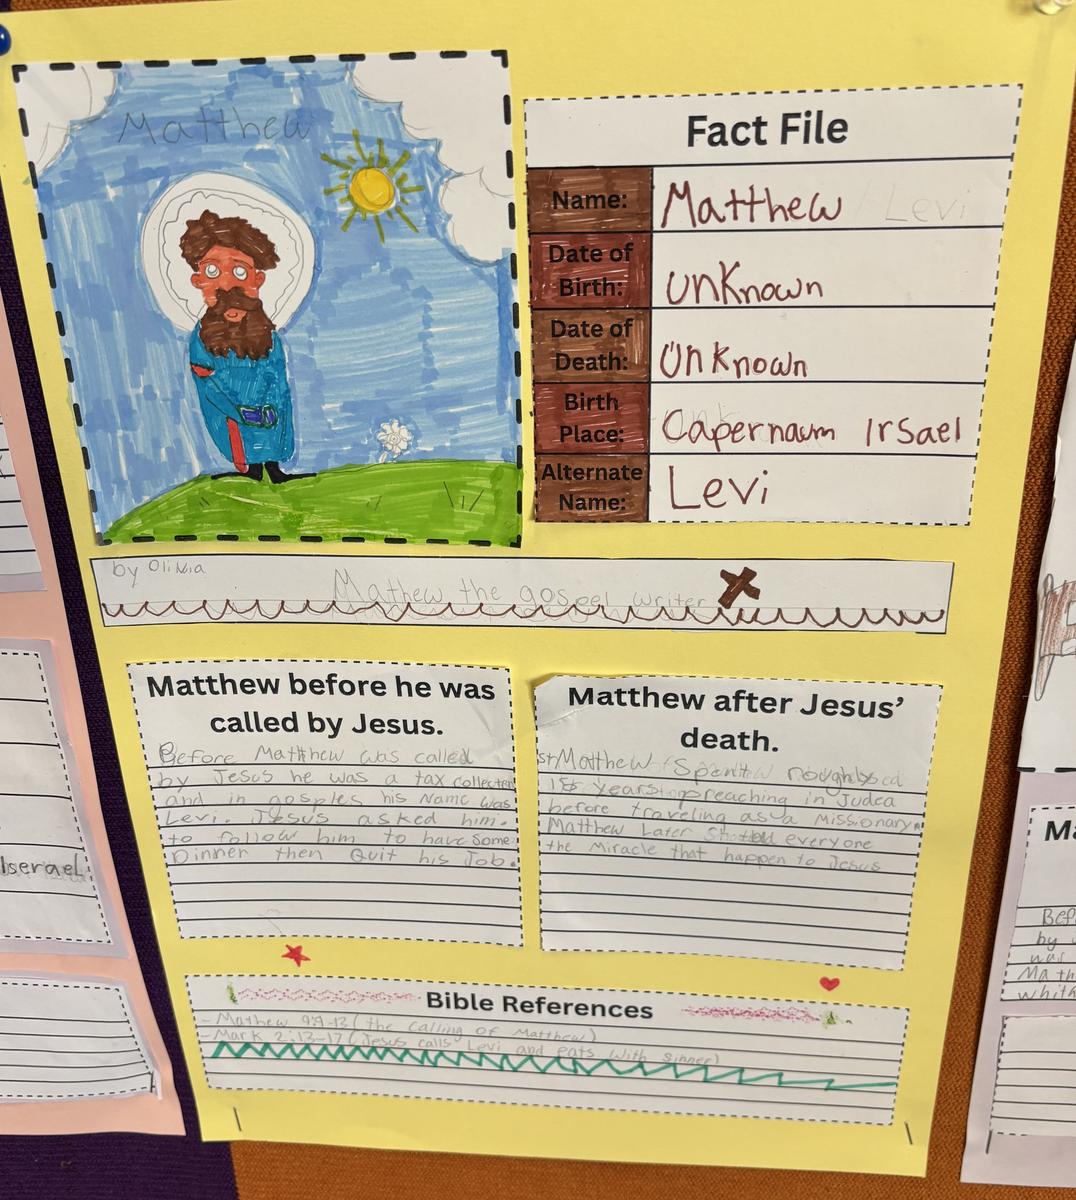 Matthew
Fact File
Name: Matthew / Levi
Date of Birth: unknown
Date of Death: unknown
Birth Place: Capernaum Irsael
Alternate Name: Levi
by Olivia
Mathew the gospel writer
Matthew before he was
called by Jesus.
Before Matthew was called
by Jesus he was a tax collecter
and in gosples his Name was
Levi. Jesus asked him.
to follow him to have some
Dinner then Quit his Job.
Matthew after Jesus'
death.
st Matthew Spent roughly
15 years preaching in Judea
before traveling as a missionary.
Matthew Later everyone
the Miracle that happen to Jesus
Bible References
- Mathew 9:9-13 (the calling of Matthew)
- Mark 2:13-17 (Jesus calls Levi and eats with sinner)
Iserael
Bef
by
was
Ma th
whith